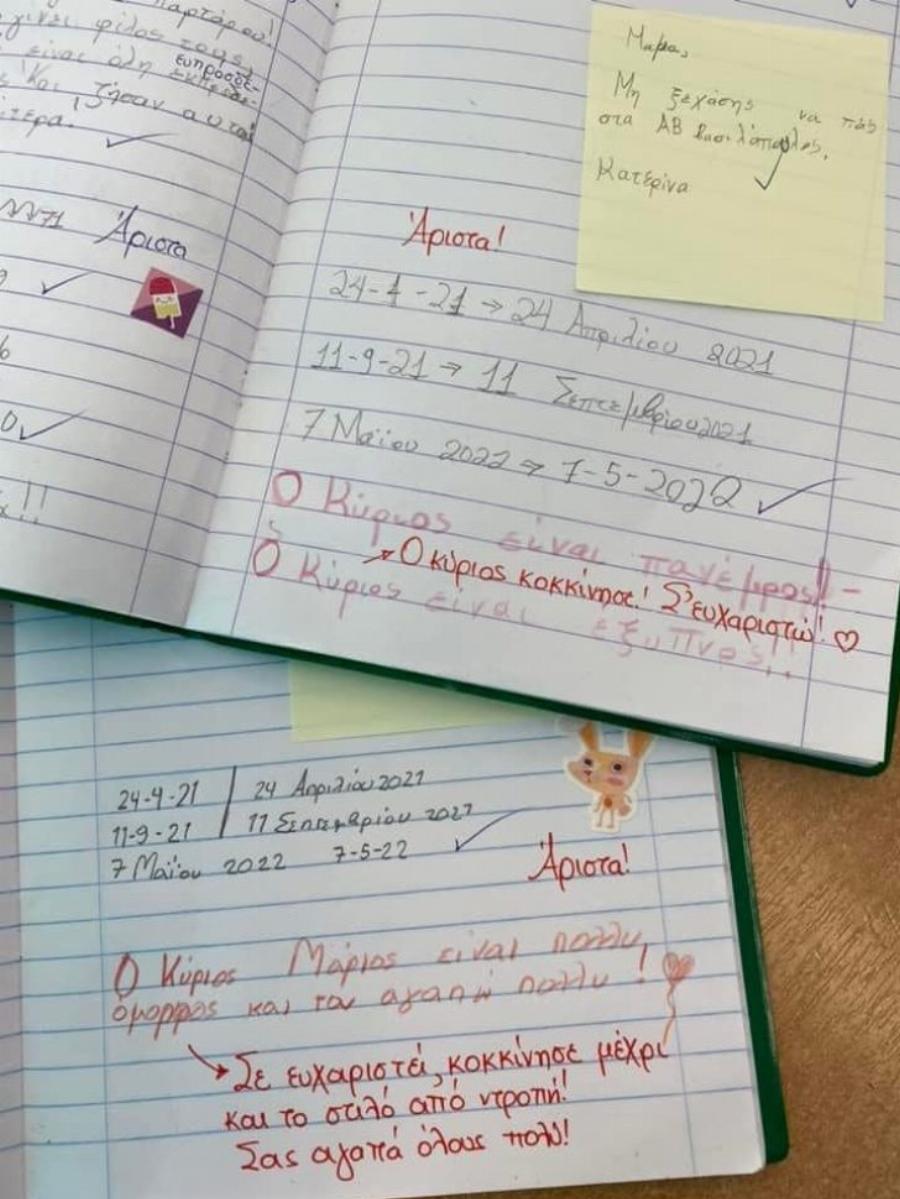 γίνει φίλος τους,
είναι όλη
Και ζήσαν αυτοί
Άριστα
Μαμα,
Μη ξεχάσης να πάς
στα ΑΒ Βασιλόπουλος.
Κατερίνα
Άριστα!
24-4-21 → 24 Απριλίου 2021
11-9-21 → 11 Σεπτεμβρίου 2021
7 Μαϊου 2022 → 7-5-2022
Ο Κύριος είναι πανέμρος!!
→ Ο κύριος κοκκίνησε! Σ'ευχαριστώ! ♡
Ο Κύριος είναι έξυπνος!!
24-4-21 | 24 Απριλίου 2021
11-9-21 | 11 Σεπτεμβρίου 2021
7 Μαΐου 2022 7-5-22
Άριστα!
Ο Κύριος Μάριος είναι πολλυ
όμορρος και τον αγαπώ πολλυ !
Σε ευχαριστεί, κοκκίνησε μέχρι
και το στιλό από ντροπή!
Σας αγαπά όλους πολύ!